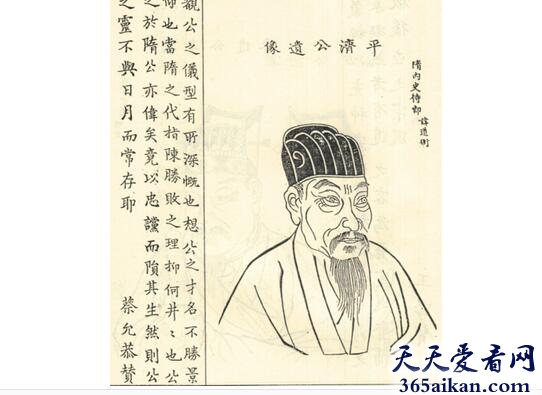 隋內史侍郎 諱道衡
平濟公遺像
觀公之儀型有所深慨也想公之才名不勝景
仰也當隋之代指陳勝敗之理抑何井〻也公
之於隋公亦偉矣竟以忠讜而隕其生然則公
之靈不與日月而常存耶 蔡允恭贊
天天爱看网
365aikan.com